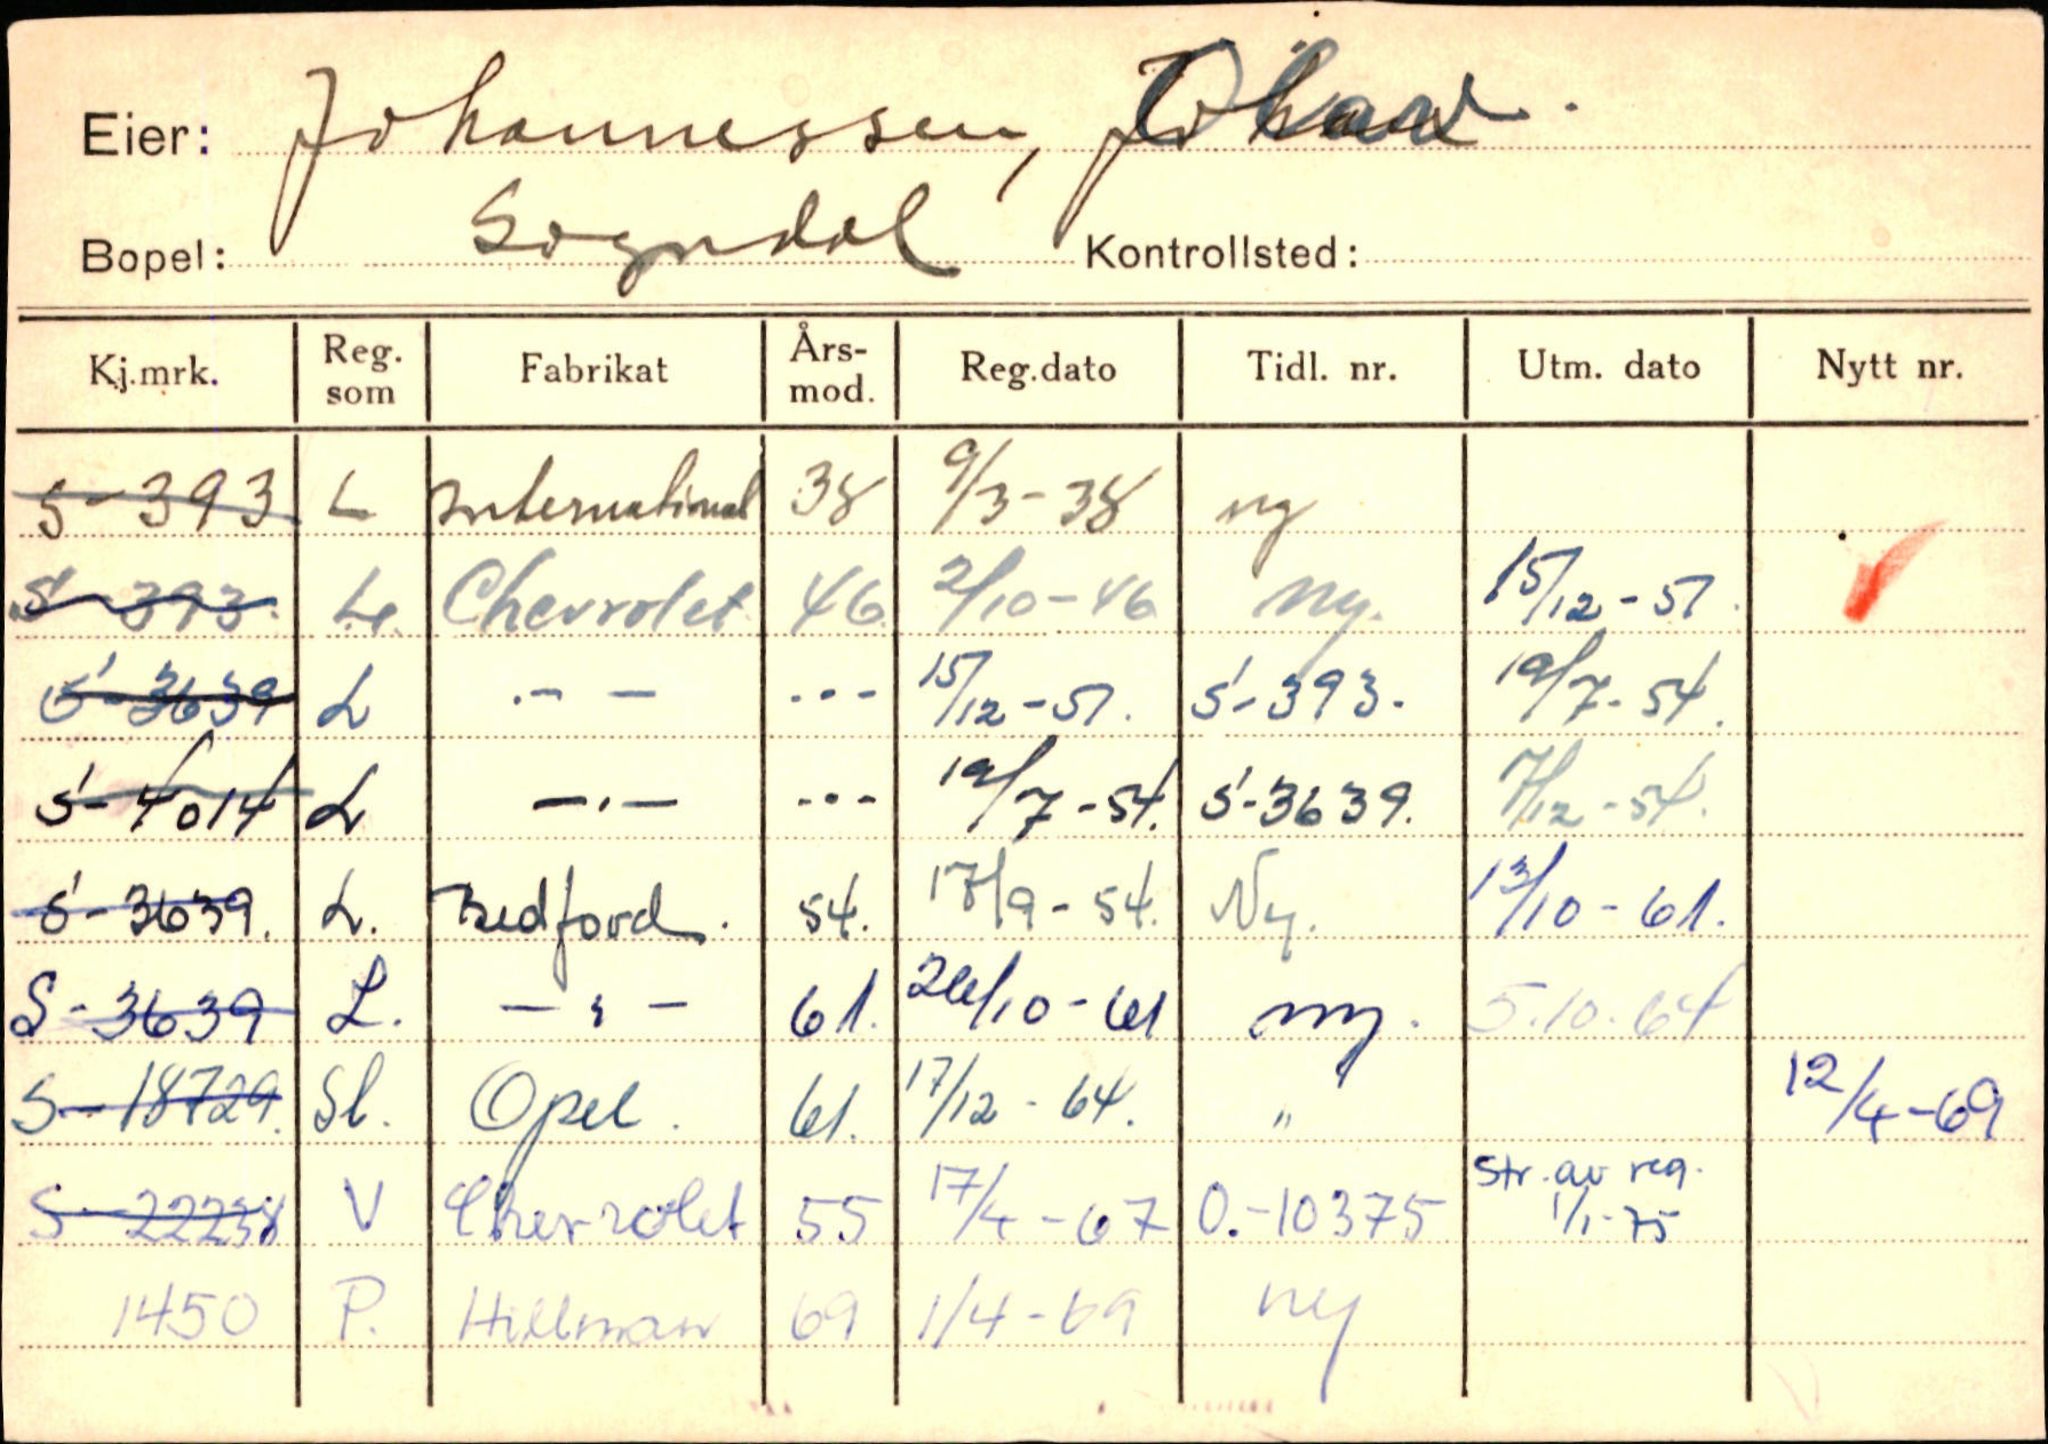 Eier: Johannessen,
Bopel: Sogndal Kontrollsted:
Kj.mrk. Reg. som Fabrikat Års-mod. Reg.dato Tidl. nr. Utm. dato Nytt nr.
S-393 L International 38 9/3-38 ny
S-393. L. Chevrolet 46 2/10-46 Ny. 15/12-51.
S-3639 L -"- --- 15/12-51. S-393. 19/7-54.
S-4014 L -"- --- 19/7-54. S-3639. 7/12-54.
S-3639. L. Bedford. 54. 17/9-54. Ny. 13/10-61.
S-3639 L. -"- 61. 26/10-61 ny. 5.10.64
S-18729. Sl. Opel. 61. 17/12-64. " 12/4-69
S-22238 V Chevrolet 55 17/4-67 O.-10375 Str. av reg. 1/1-75
1450 P. Hillman 69 1/4-69 ny